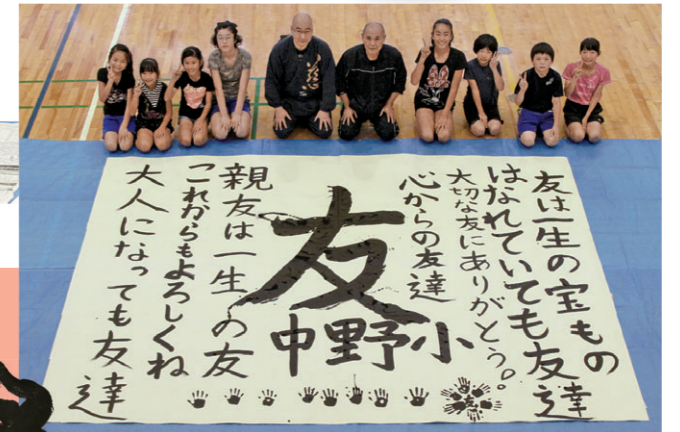 友は一生の宝もの
はなれていても友達
大切な友にありがとう。
心からの友達
友
中野小
親友は一生の友
これからもよろしくね
大人になっても友達